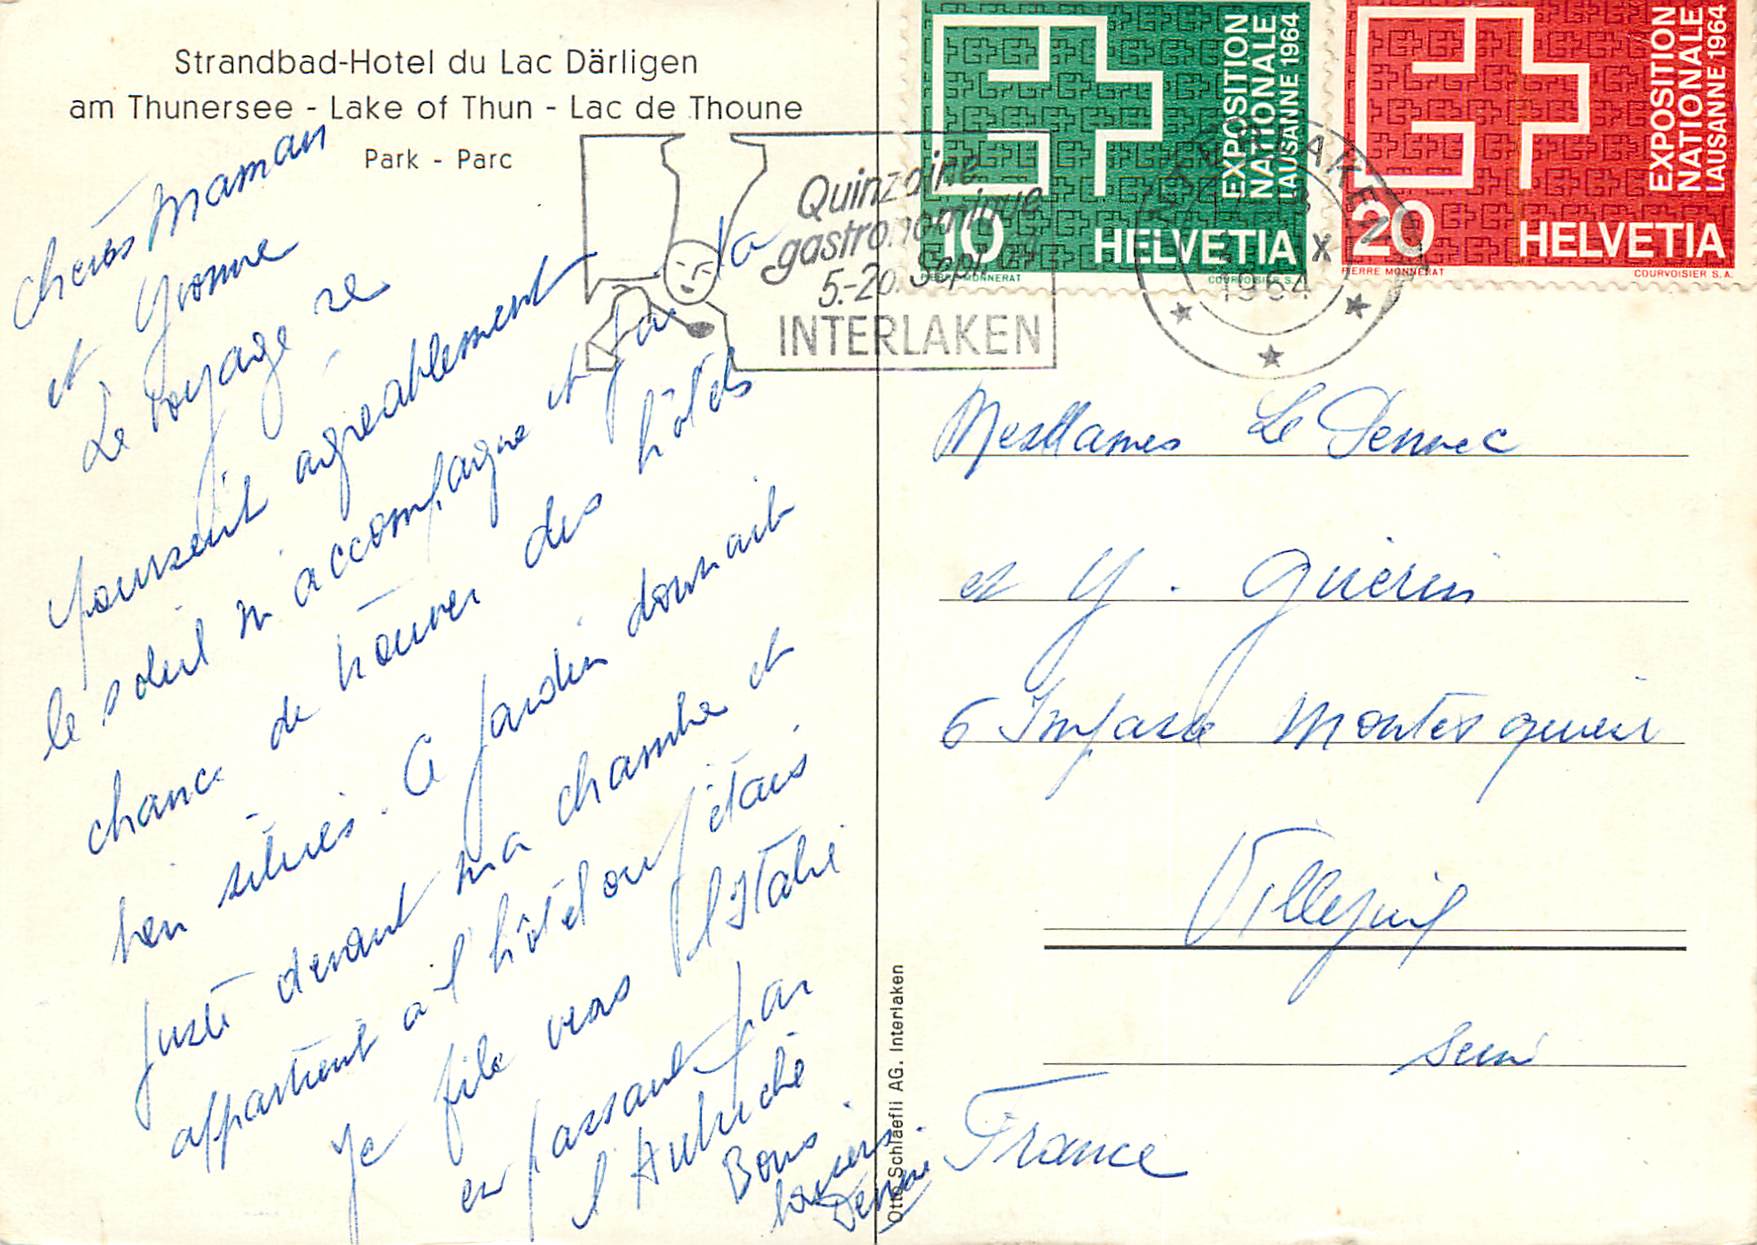 Strandbad-Hotel du Lac Därligen
am Thunersee - Lake of Thun - Lac de Thoune
Park - Parc
chères Maman
et Yvonne
Le voyage se
poursuit agréablement
le soleil m'accompagne et j'ai la
chance de trouver des hôtels
bien situés. Ce jardin donnait
juste devant ma chambre et
appartient à l'hôtel où j'étais
Je file vers l'Italie
en passant par
l'Autriche
Bons
baisers
Otto Schlaefli AG. Interlaken
Quinzaine
gastronomique
5.-20. Sept.
INTERLAKEN
INTERLAKEN
X
1964
EXPOSITION
NATIONALE
LAUSANNE 1964
10 HELVETIA
PIERRE MONNERAT COURVOISIER S.A.
EXPOSITION
NATIONALE
LAUSANNE 1964
20 HELVETIA
PIERRE MONNERAT COURVOISIER S.A.
Mesdames Le Dennec
et Y. Guérin
6 Impasse Montesquieu
Villejuif
Seine
France